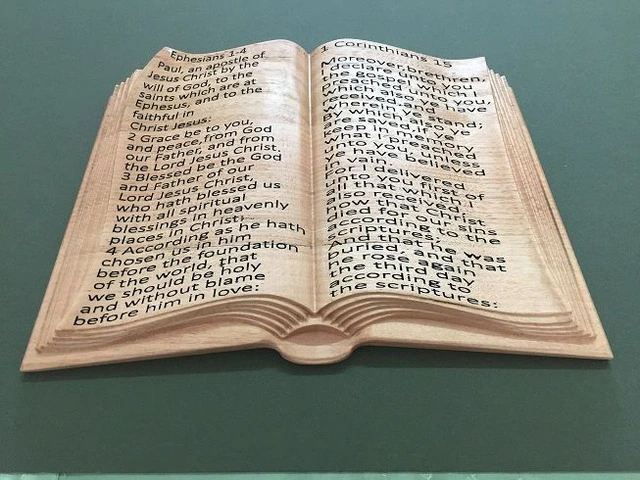 Ephesians 1-4
Paul, an apostle of
Jesus Christ by the
will of God, to the
saints which are at
Ephesus, and to the
faithful in
Christ Jesus:
2 Grace be to you,
and peace, from God
our Father, and from
the Lord Jesus Christ.
3 Blessed be the God
and Father of our
Lord Jesus Christ,
who hath blessed us
with all spiritual
blessings in heavenly
places in Christ:
4 According as he hath
chosen us in him
before the foundation
of the world, that
we should be holy
and without blame
before him in love:
1 Corinthians 15
Moreover, brethren,
I declare unto you
the gospel which I
preached unto you,
which also ye have
received, and
wherein ye stand;
By which also ye
are saved, if ye
keep in memory
what I preached
unto you, unless
ye have believed
in vain.
For I delivered
unto you first of
all that which I
also received,
how that Christ
died for our sins
according to the
scriptures;
And that he was
buried, and that
he rose again
the third day
according to
the scriptures: